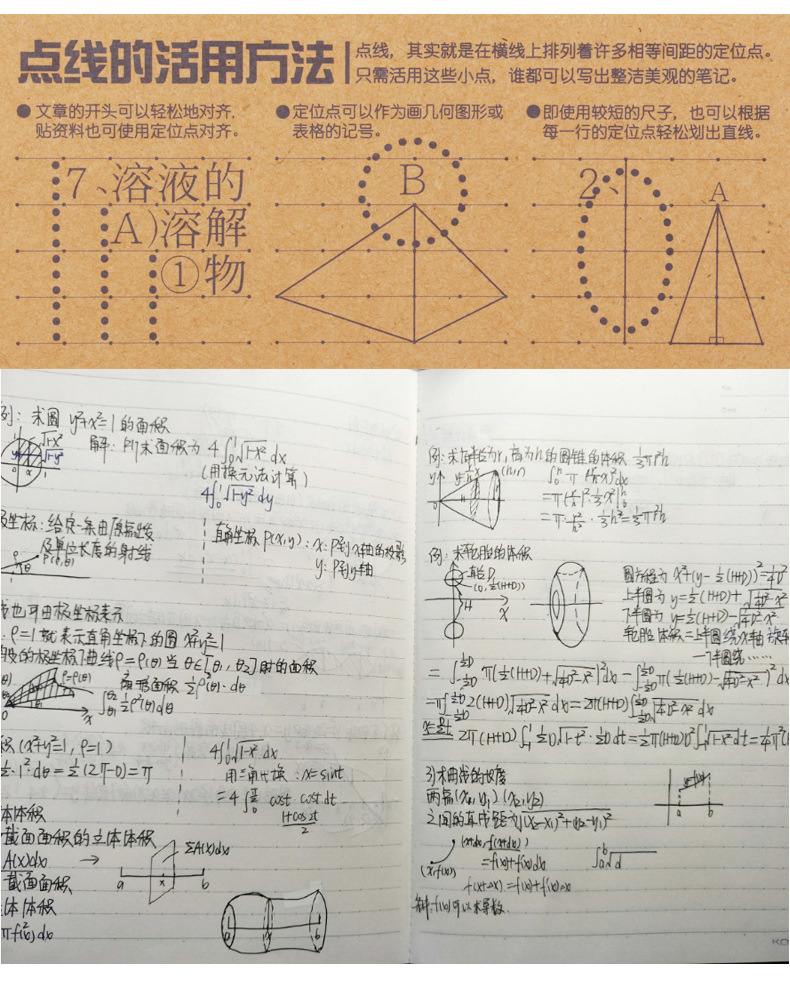 点线的活用方法
点线，其实就是在横线上排列着许多相等间距的定位点。
只需活用这些小点，谁都可以写出整洁美观的笔记。
● 文章的开头可以轻松地对齐.
贴资料也可使用定位点对齐.
● 定位点可以作为画几何图形或
表格的记号。
● 即使用较短的尺子，也可以根据
每一行的定位点轻松划出直线。
7、溶液的
A)溶解
①物
B
2、
A
例：求圆 y²+x²=1 的面积
解：所求面积为 4∫₀¹√1-x² dx
(用换元法计算)
4∫₀¹√1-y² dy
√1-x²
√1-y²
坐标：给定一条由原点出发
及单位长度的射线
P(ρ,θ)
直角坐标 P(x,y)：x：P到y轴的投影
y：P到x轴
也可由极坐标表示
ρ=1 就表示直角坐标下的圆 x²+y²=1
的极坐标下曲线ρ=ρ(θ) 当 θ∈[θ₁, θ₂]时的面积
ρ=ρ(θ)
扇形面积 ½ρ²(θ)·dθ
∫ ½ρ²(θ)dθ
积 (x²+y²=1, ρ=1)
½·1²·dθ=½(2π-0)=π
4∫₀¹√1-x² dx
用三角代换：x=sint
=4∫ cost cost dt
1+cos2t
2
体体积
截面面积的立体体积
A(x)dx →
ΣA(x)dx
a x b
截面面积
体体积
πf²(x)dx
例：求底半径为r，高为h的圆锥的体积 ⅓πr²h
(h,r)
=π·r²/h²·⅓h³=⅓πr²h
例：求轮胎的体积
直径D
(0, ½(H+D))
H
X
圆方程为 x²+(y-½(H+D))²=¼D²
上半圆为 y=½(H+D)+√¼D²-x²
下半圆为 y=½(H+D)-√¼D²-x²
轮胎体积=上半圆绕x轴旋转
-下半圆绕……
=∫π(½(H+D)+√¼D²-x²)²dx-∫π(½(H+D)-√¼D²-x²)²dx
=π∫2(H+D)√¼D²-x² dx=2π(H+D)∫√¼D²-x² dx
2π(H+D)∫½D√1-t²·½D dt=½π(H+D)D²∫√1-x² dt=¼π²(
3)求曲线的长度
两点(x₁,y₁) (x₂,y₂)
之间的直线距为√(x₂-x₁)²+(y₂-y₁)²
(x+dx, f(x+dx))
=f(x)+f'(x)dx
(x,f(x))
f(x+Δx)=f(x)+f'(x)Δx
a b